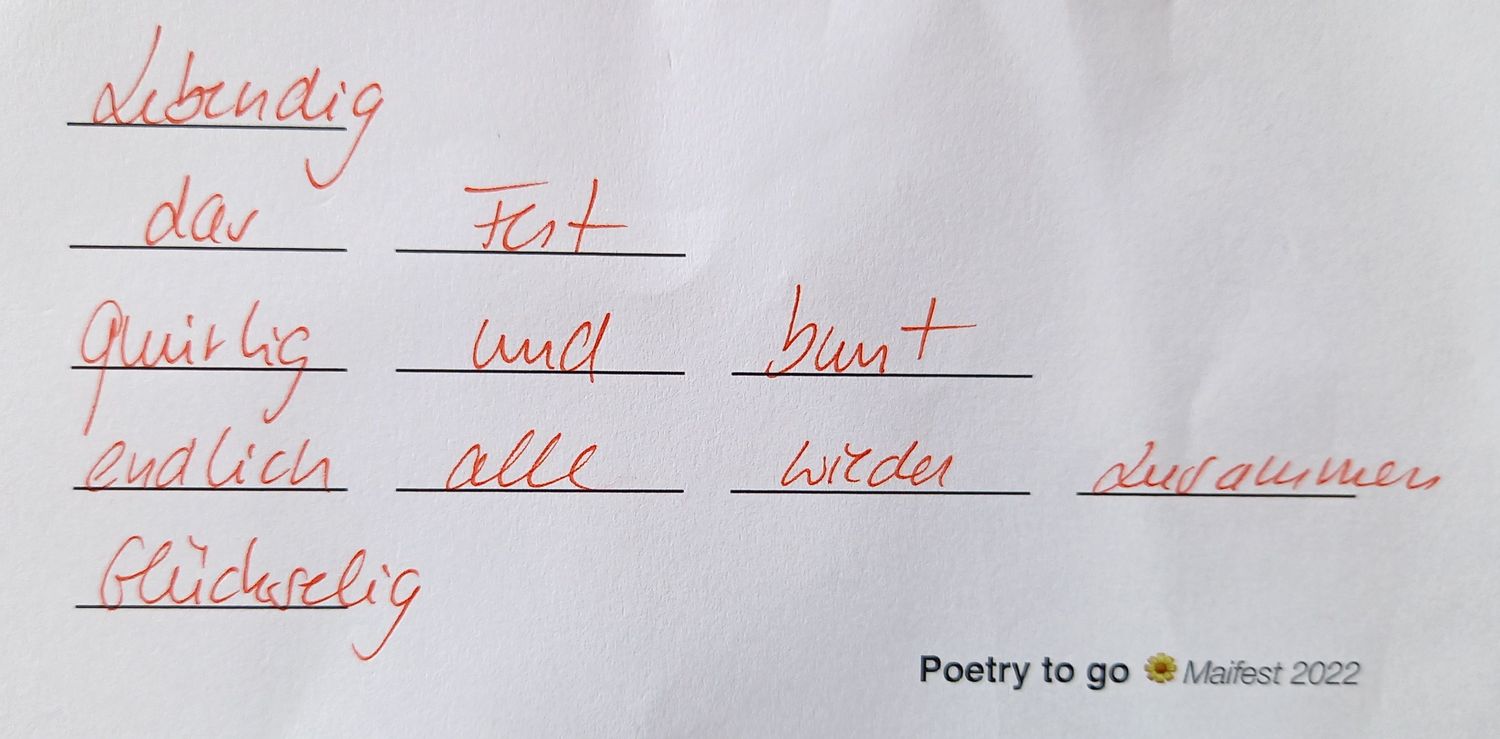 Lebendig
das Fest
quirlig und bunt
endlich alle wieder zusammen
Glückselig
Poetry to go Maifest 2022